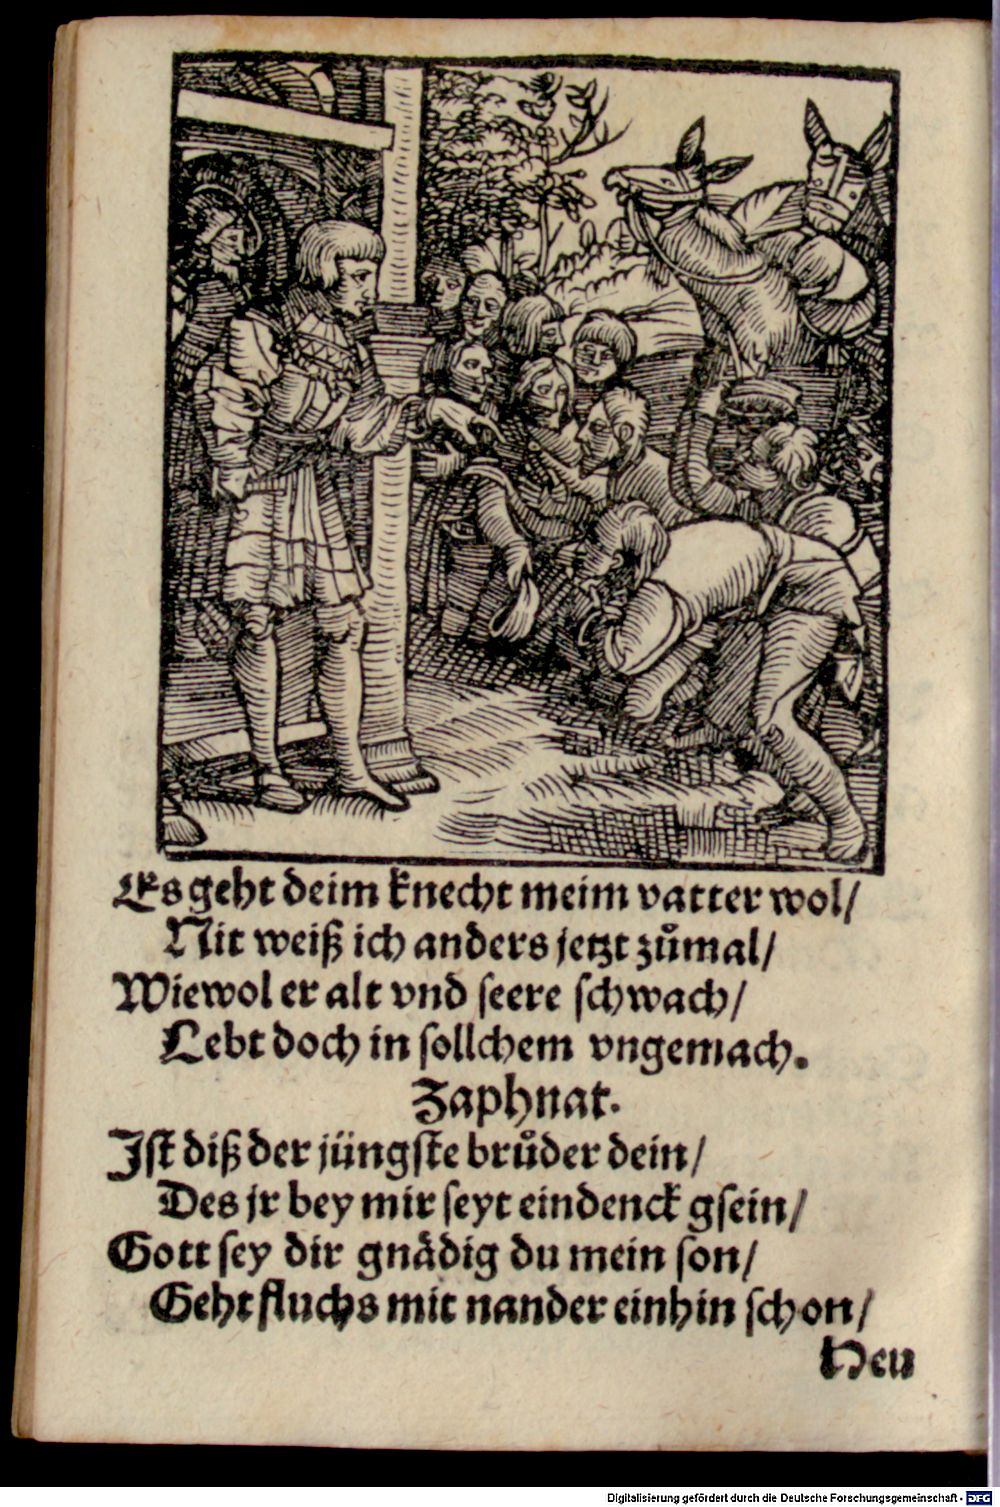 Es geht deim knecht meim vatter wol/
Nit weiß ich anders jetzt zůmal/
Wiewol er alt vnd seere schwach/
Lebt doch in sollchem vngemach.
Zaphnat.
Ist diß der jüngste brůder dein/
Des jr bey mir seyt eindenck gsein/
Gott sey dir gnädig du mein son/
Geht fluchs mit nander einhin schon/
Heu
Digitalisierung gefördert durch die Deutsche Forschungsgemeinschaft - DFG